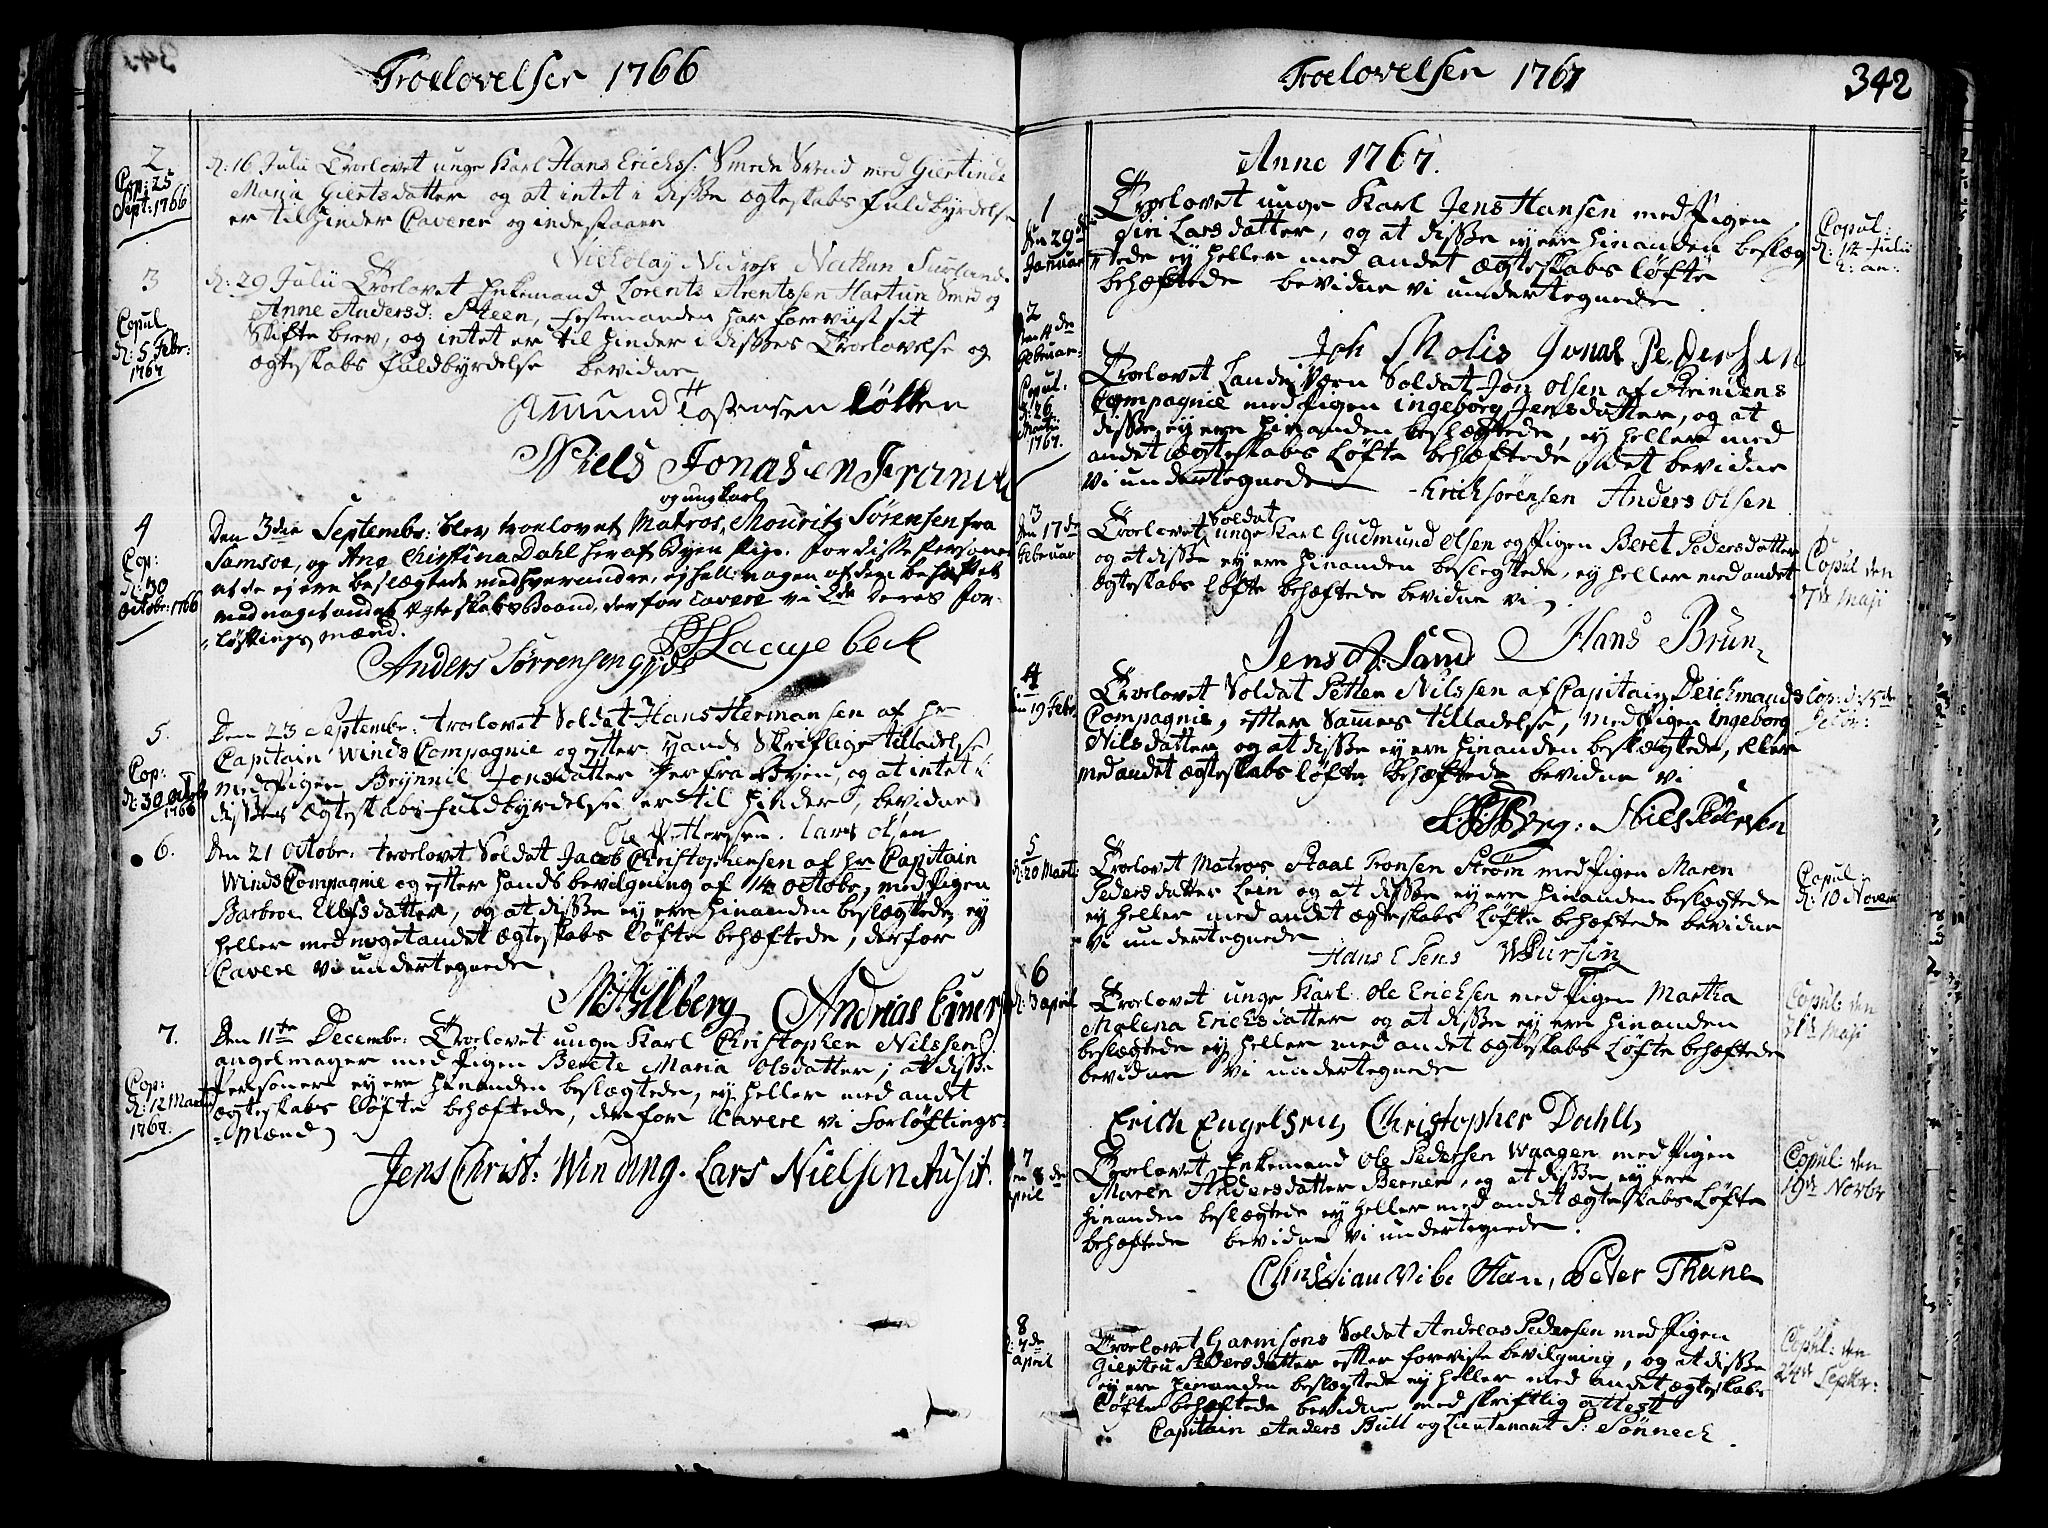 Troelovelser 1766
2
Cop: 25
Sept: 1766
d: 16 Julii Troelovet unge Karl Hans Erichs: Smede Svend med Giertrud
Maria Giertsdatter og at intet i disse ægteskabs fuldbyrdelse
er til hinder Caverer og indestaaer
Nickolay Nidros Nathun
3
Copul
d: 5 Febr:
1767
d: 29 Julii Troelovet Enkemand Lorents Arentssen Hartun Smed og
Anne Andersd: Steen, Festemanden har forevist sit
Skifte brev, og intet er til hinder i disses Troelovelse og
ægteskabs fuldbyrdelse bevidne
Amund Tostensen Løkken
Niels Jonasen
4
Cop:
d: 30
Octobr: 1766
og ung karl
Den 3die Septembr: blev troelovet Matros, Mouritz Sørensen fra
Samsøe, og Ane Christina Dahl her af Byen Pige. for disse Persone
at de ej ere beslægtede med hverandre, ej hell: nogen af dem behæftet
med noget andet Ægteskabs Baand, derfor Cavere vi 2de deres for-
løftings mænd.
Anders Sørrensen
5.
Cop:
d: 30 Octobr
1766
Den 23 Septembr: troelovet Soldat Hans Hermansen af hr
Capitain Winds Compagnie og efter hands Skriftlige tilladelse
med Pigen Brynnil Jonsdatter her fra Byen, og at intet i
disses Ægteskabs fuldbyrdelse er til hinder, bevidne
Ole Pettersen. Lars Olsen
6.
Den 21 Octobr: troelovet Soldat Jacob Christophersen af hr Capitain
Winds Compagnie og efter hands bevilgning af 14 Octobr, med Pigen
Barbroe Ellefsdatter, og at disse ey ere hinanden beslægtede, ey
heller med noget andet ægteskabs løfte behæftede, derfor
Cavere vi undertegnede
Andreas Einers
7.
Cop:
d: 12 Martii
1767.
Den 11te Decembr: Troelovet unge Karl Christopher Nilssen
angelmager med Pigen Berete Maria Olsdatter; at disse
Personer ey ere hinanden beslægtede, ey heller med andet
ægteskabs løfte behæftede, derfore Cavere vi forløftings-
Mænd
Jens Christ: Winding. Lars Nielsen
Troelovelser 1767
342
Anno 1767.
1
den 29de
Januar
Troelovet unge Karl Jens Hansen med Pigen
Siri Larsdatter, og at disse ey ere hinanden beslæg
tede ey heller med andet ægteskabs løfte
behæftede bevidne vi undertegnede
Copul:
d: 14 Julii
h: an:
Joh Molis Jonas Pedersen
2
den 4de
Februar:
Copul:
d: 26
Martii
1767.
Troelovet Landværn Soldat Jon Olsen af Strindens
Compagnie med Pigen Ingeborg Jensdatter, og at
disse ey ere hinanden beslægtede, ey heller med
andet ægteskabs løfte behæftede, det bevidne
vi undertegnede
Erich Sørensen Anders Olsen
3
Den 17de
Februar
Soldat
Troelovet unge Karl Gudmund Olsen og Pigen Beret Pedersdatter
og at disse ey ere hinanden beslegtede, ey heller med andet
ægteskabs løfte behæftede bevidne vi
Copul den
7de Maji
Jens A: Sand Hans Brun
4
den 19 Febr
Troelovet Soldat Petter Nilssen af Capitain Deichmands
Compagnie, efter Sammes tilladelse, med Pigen Ingeborg
Nilsdatter og at disse ey ere hinanden beslægtede, eller
med andet ægteskabs løfte behæftede bevidne vi
Cop: d: 15de
Niels Pedersen
5
d: 20 Marti
Troelovet Matros Staal Tronsen Strøm med Pigen Maren
Pedersdatter Leen og at disse ey ere hinanden beslægtede
ey heller med andet ægteskabs løfte behæftede bevidne
vi undertegnede
Copul:
d: 10 Novem
Hans E Sens
6
d: 3 april
Troelovet unge Karl Ole Erichsen med Pigen Martha
Malena Erichsdatter og at disse ey ere hinanden
beslægtede ey heller med andet ægteskabs løfte behæftede
bevidne vi undertegnede
Copul: den
21de Maji
Erich Engelsen, Christopher Dahll,
7
den 8de
april
Troelovet Enkemand Ole Pedersen Waagen med Pigen
Maren Andersdatter Berner, og at disse ey ere
hinanden beslægtede ey heller med andet ægteskabs løfte
behæftede bevidne vi undertegnede.
Copul: den
19de Novbr
Christian Vibe Han, Peter Thune
8
d: 7de
april
Troelovet Garnisons Soldat Andreas Pedersen med Pigen
Giertru Pedersdatter efter foreviste bevilgning, og at disse
ey ere hinanden beslægtede ey heller med andet ægteskabs
løfte behæftede bevidne med skriftlig attest
Capitain Anders Bull og Lieutenant P: Sønneck.
Copul: den
24de Septbr: